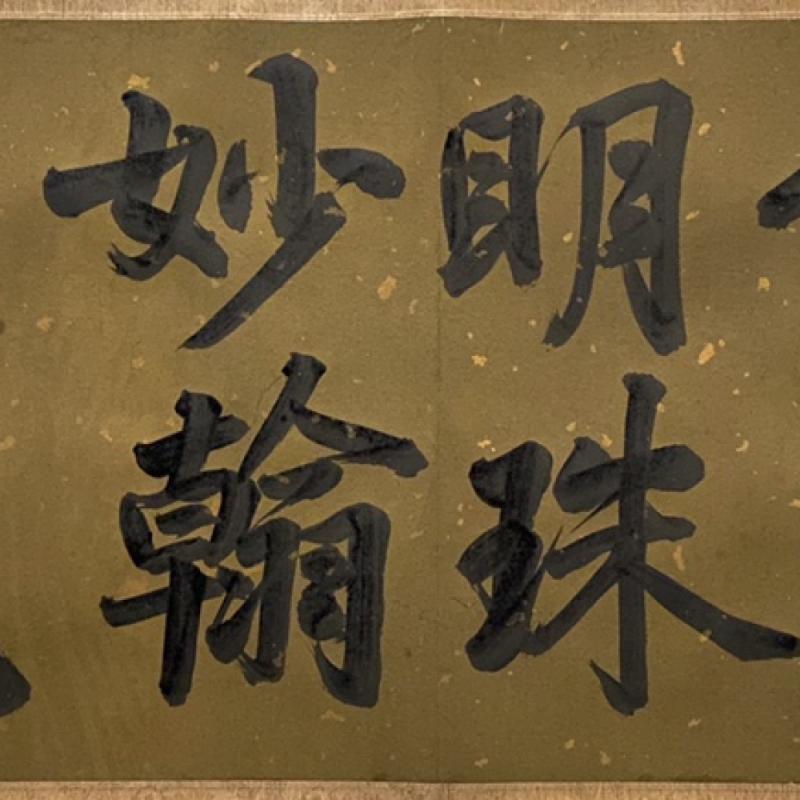 明珠
妙翰